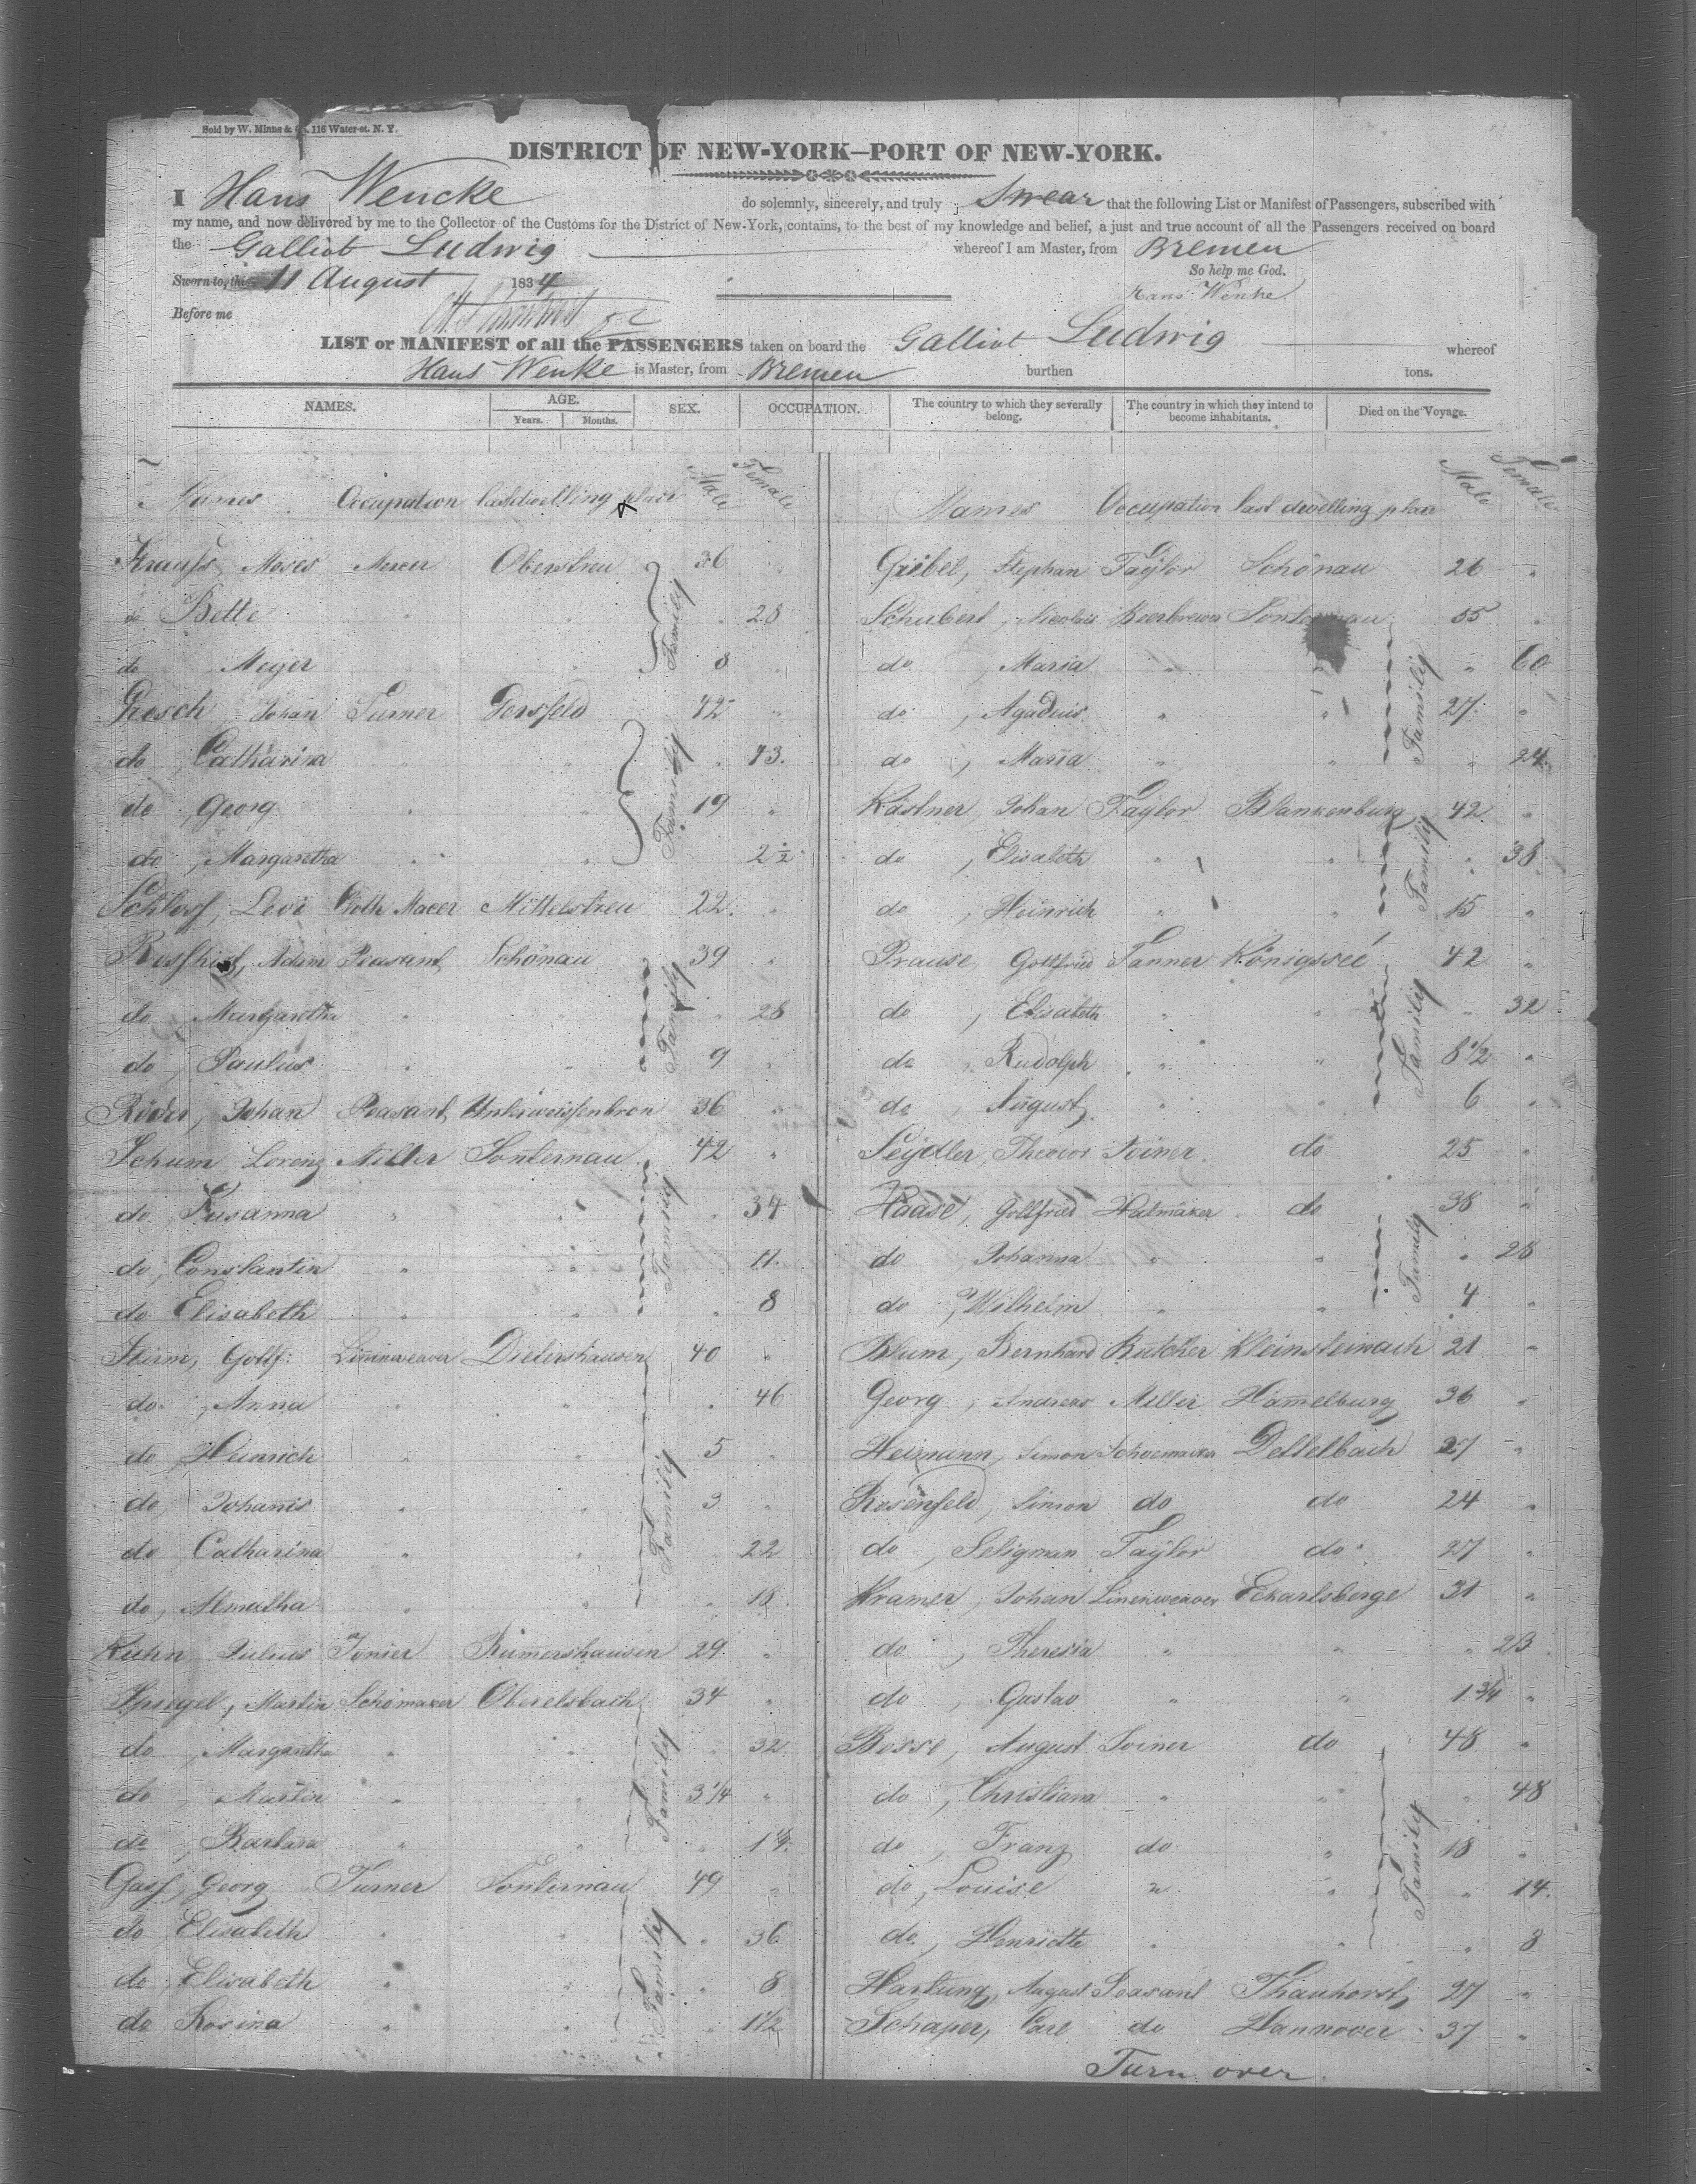 Sold by W. Minns & Co. 116 Water-st. N. Y.
DISTRICT OF NEW-YORK—PORT OF NEW-YORK.
I Hans Wencke do solemnly, sincerely, and truly Swear that the following List or Manifest of Passengers, subscribed with
my name, and now delivered by me to the Collector of the Customs for the District of New-York, contains, to the best of my knowledge and belief, a just and true account of all the Passengers received on board
the Galliot Ludwig whereof I am Master, from Bremen
So help me God.
Sworn to, this 11 August 1834
Hans Wenke
Before me
LIST or MANIFEST of all the PASSENGERS taken on board the Galliot Ludwig whereof
Hans Wenke is Master, from Bremen burthen tons.
NAMES. AGE. Years. Months. SEX. OCCUPATION. The country to which they severally belong. The country in which they intend to become inhabitants. Died on the Voyage.
Names Occupation last dwelling place Male Female
Krauss, Moses Mercer Oberstreu 36 "
do Bette " " " 28
do Meyer " " 8 "
Family
Gresch, Johan Turner Gersfeld 42 "
do, Catharina " " " 43.
do, Georg " " 19 "
do, Margaretha " " " 2 1/2
Family
Schloss, Levi Cloth Macer Mittelstreu 22. "
Adam Peasant Schönau 39 "
do Margaretha " " " 28
do, Paulus " " 9 "
Family
Röder, Johan Peasant Unterweissenbron 36 "
Schum, Lorenz Miller Sonternau 42 "
do. Susanna " " " 34
do, Constantin " " 11.
do Elisabeth " " " 8
Family
Sturm, Gottf: Linnenweaver Dietershausen 40 "
do. , Anna " " " 46
do, Heinrich " " 5 "
do, Johanis " " 3 "
do, Catharina " " " 22
do, " " " 18
Family
Kuhn Julius Rumershausen 29. "
Spiegel, Martin Schomaker Oberelsbach 34 "
do, Margaretha " " " 32
do, Martin " " 3 1/4 "
do, Barbara " "
Family
Gass, Georg Turner Sonternau 49 "
do Elisabeth " " " 36
do, Elisabeth " " " 8
do Rosina " " " 1 1/2
Family
Names Occupation last dwelling place Male Female
Griebel, Stephan Taylor Schönau 26 "
Schubert, Nicolais Beerbrewer 55 "
do , Maria " " " 60
do , " " 27 "
do , Maria " " " 24
Family
Kästner, Johan Taylor Blankenburg 42 "
do , Elisabeth " " " 38
do , Heinrich " " 15 "
Family
Prause, Gottfried Tanner Königssee 42 "
do , Elisabeth " " " 32
do , Rudolph " " 8 1/2 "
do , August " " 6 "
Family
Seydler, Theodor Joiner do 25 "
Haase, Gottfried Hatmaker do 38 "
do , Johanna " " " 28
do , Wilhelm " " 4 "
Family
Blum, Bernhard Butcher Kleinsteinach 21 "
Georg, Andreas Miller Hammelburg 36 "
Heimann, Simon Schoemaker Dettelbach 27 "
Rosenfeld, Simon do do 24 "
do , Seligman Taylor do 27 "
Kramer, Johan Linenweaver Eckartsberge 31 "
do , Theresia " " " 23
do , Gustav " " 1 3/4 "
Bosse, August Joiner do 48 "
do , Christiana " " " 48
do , Franz do " 18 "
do , Louise " " " 14.
do , Henriette " " " 8
Family
Hartung, August Peasant Thanhorst 27 "
Schaper, Carl do Hannover 37 "
Turn over